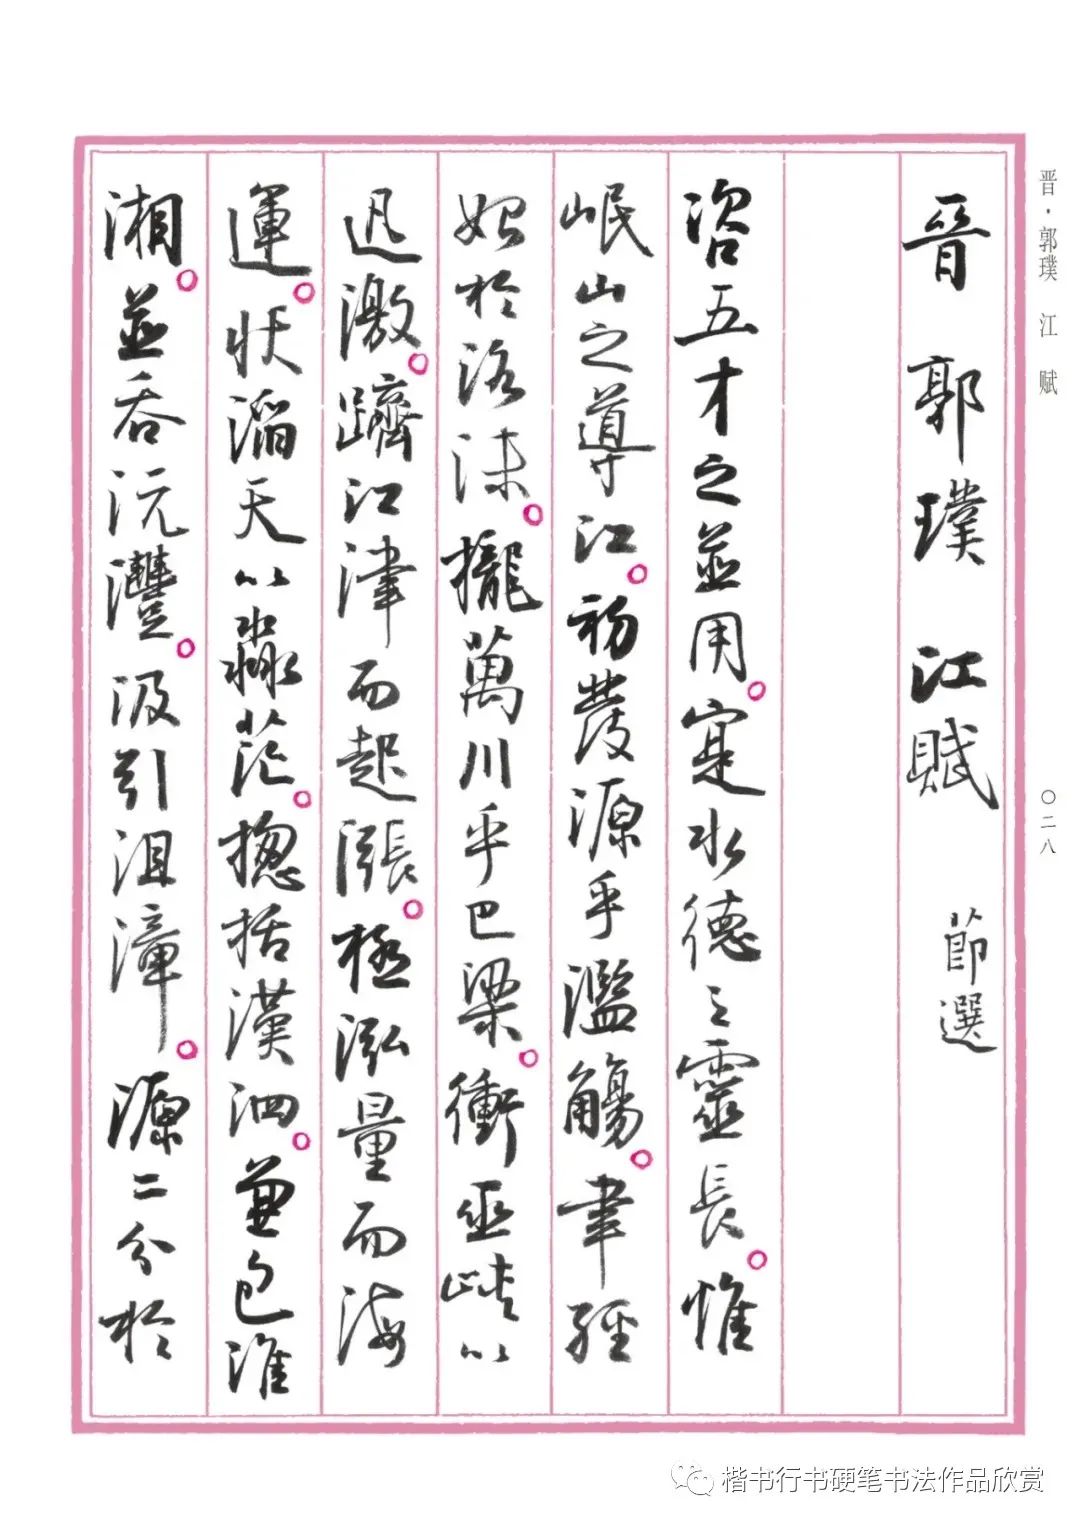 晋·郭璞 江 赋
〇二八
晋 郭璞 江賦 節選
咨五才之並用。寔水德之靈長。惟
岷山之導江。初發源乎濫觴。聿經
始於洛沬。攏萬川乎巴梁。衝巫峽以
迅激。躋江津而起漲。極泓量而海
運。狀滔天以淼茫。揔括漢泗。兼包淮
湘。並吞沅灃。汲引沮漳。源二分於
楷书行书硬笔书法作品欣赏